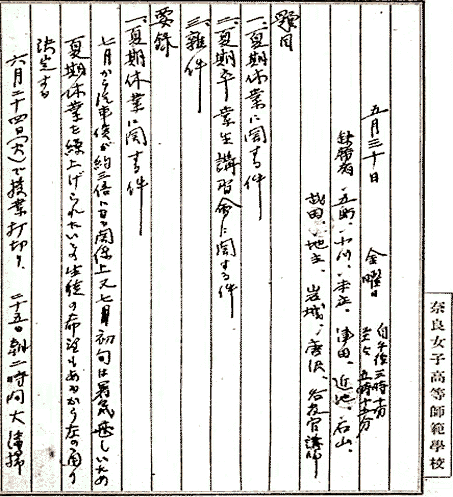 奈良女子高等師範學校
五月三十日 金曜日 自午後三時十分
至〃五時十五分
缺席者、小川、本庄、津田、近地、石山、
地主、岩城、唐沢、各教官講師
題目
一、夏期休業に関する件
二、夏期卒業生講習会に関する件
三、雑件
要録
一、夏期休業に関する件
七月から汽車賃が約三倍になる関係上又七月初旬は暑気甚しいため
夏期休業を繰上げられたいとの生徒の希望もあるから左の通り
決定する
六月二十四日(火)で授業打切り、二十五日朝二時間大清掃